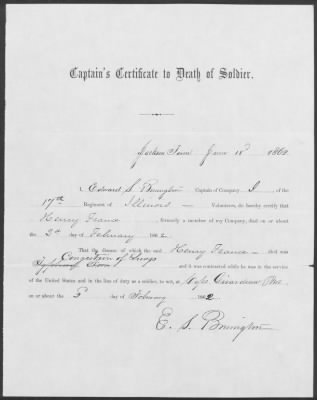 Captain's Certificate to Death of Soldier.
Jackson Tenn June 18th 1862
I, Edward S. Bonington Captain of Company I of the
17th Regiment of Illinois Volunteers, do hereby certify that
Henry France, formerly a member of my Company, died on or about
the 2d day of February 1862.
That the disease of which the said Henry France died was
Congestion of Lungs
and it was contracted while he was in the service
of the United States and in the line of duty as a soldier, to wit, at Cape Girardeau Mo.
on or about the 2 day of February 1862
E. S. Bonington